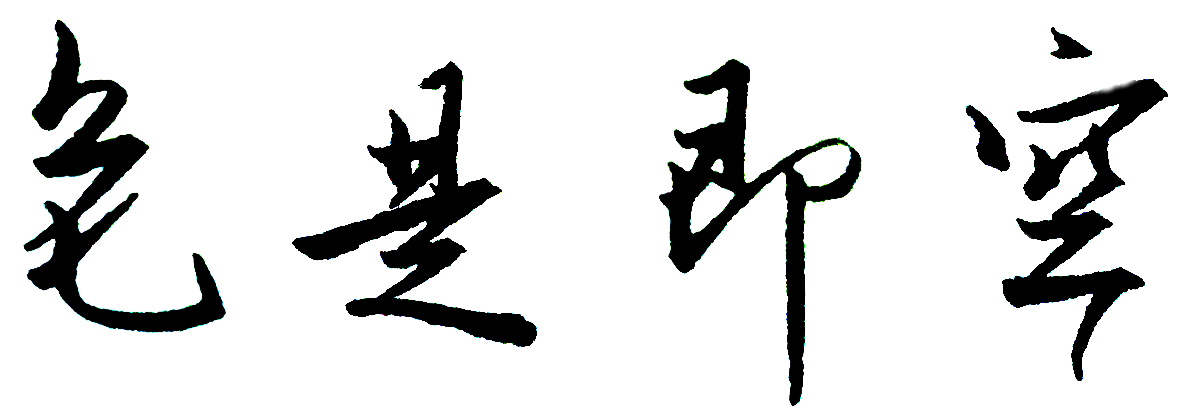 色是即空